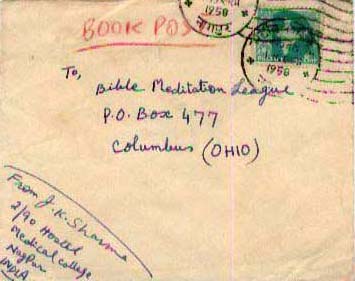 BOOK POST
1958
नागपुर
1958
To,
Bible Meditation League
P.O. Box 477
Columbus (OHIO)
From J. K. Sharma
2/90 Hostel
Medical College
Nagpur
INDIA